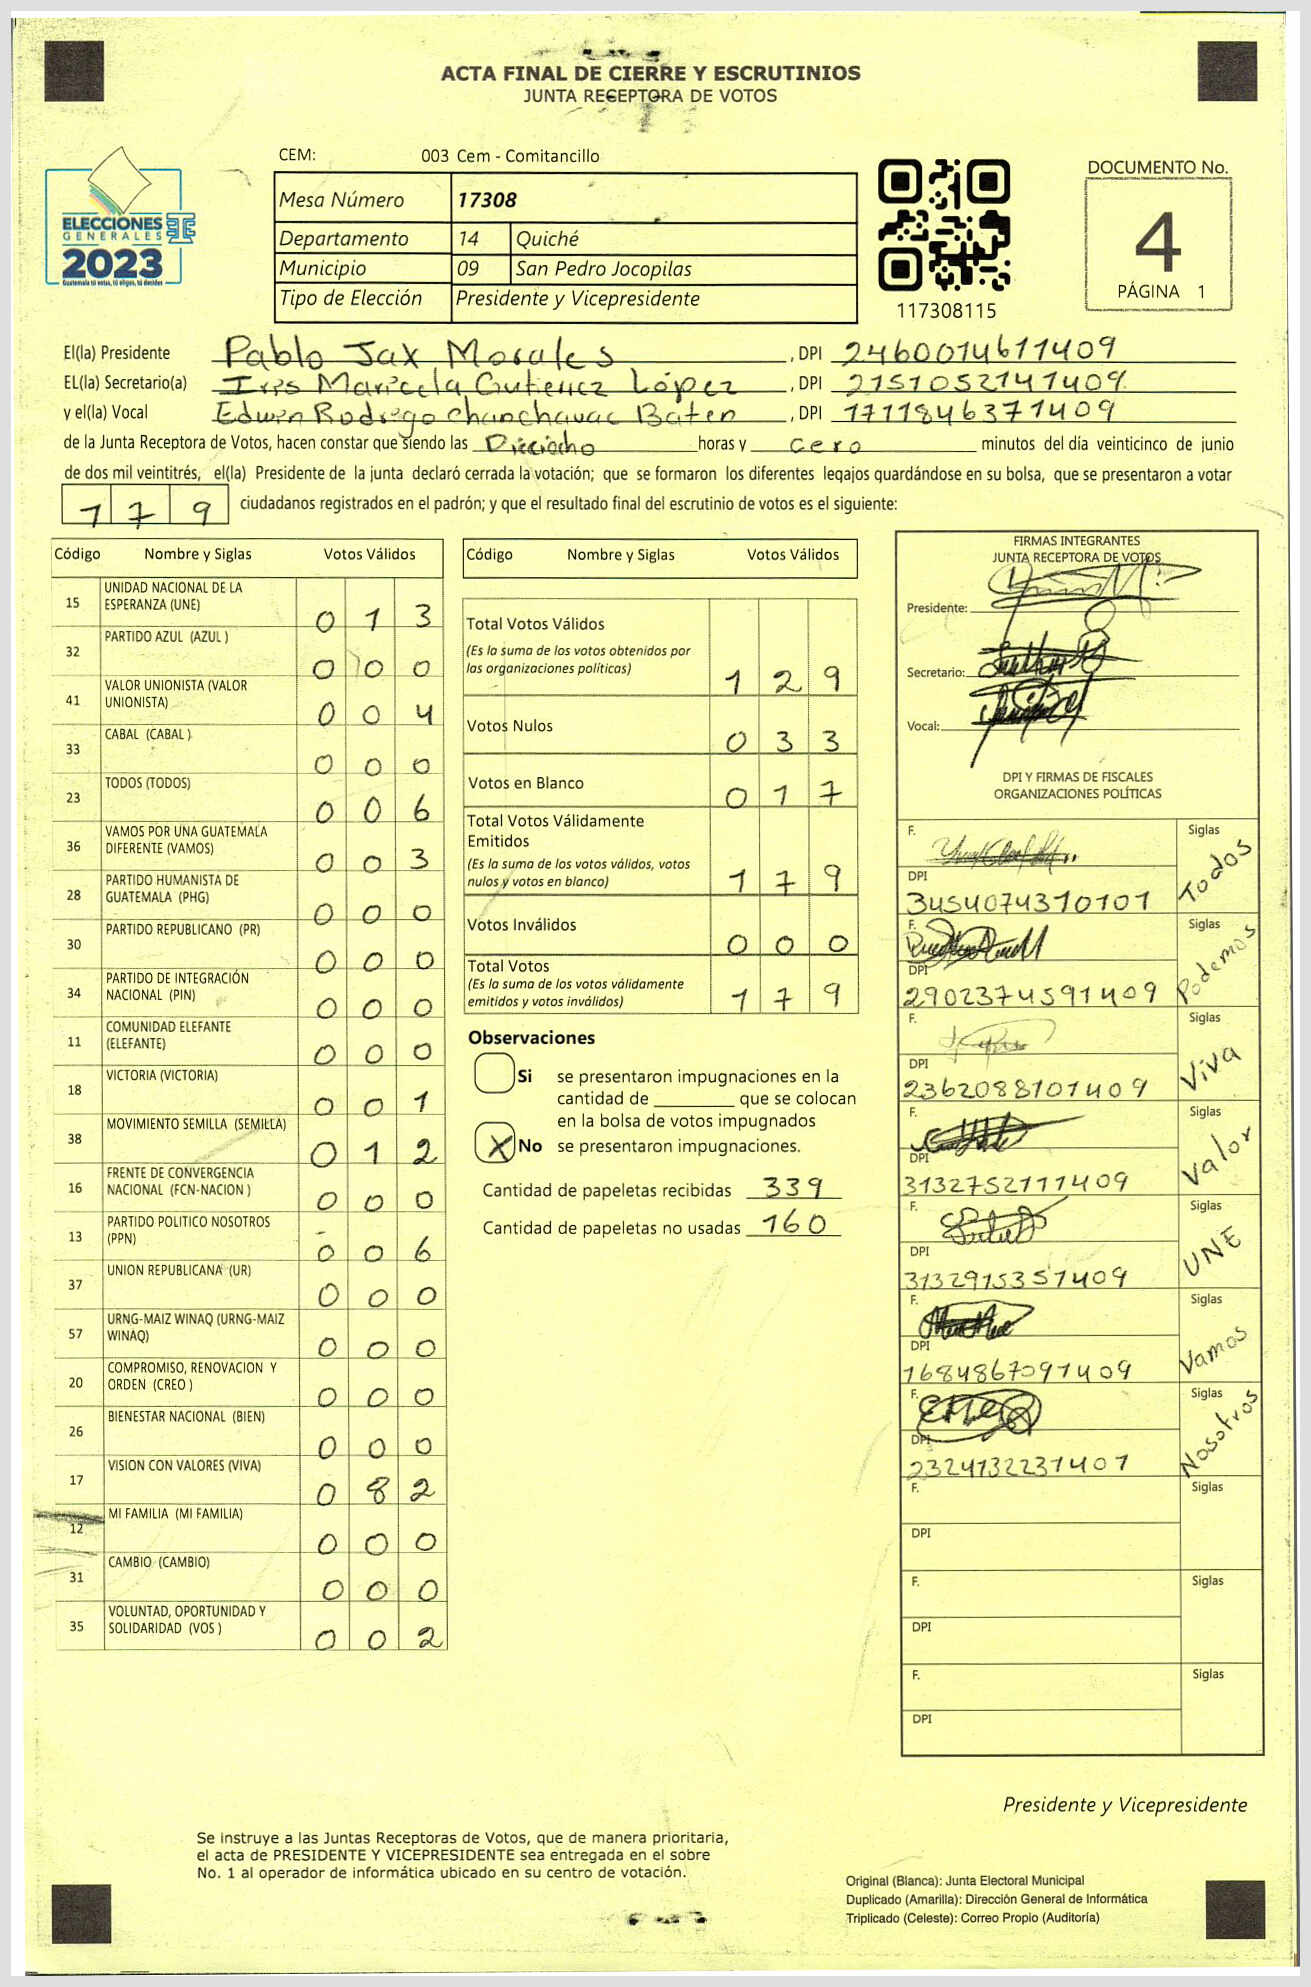 ACTA FINAL DE CIERRE Y ESCRUTINIOS
JUNTA RECEPTORA DE VOTOS
ELECCIONES
GENERALES
2023
Guatemala tú votas, tú eliges, tú decides
CEM: 003 Cem - Comitancillo
Mesa Número 17308
Departamento 14 Quiché
Municipio 09 San Pedro Jocopilas
Tipo de Elección Presidente y Vicepresidente
117308115
DOCUMENTO No.
4
PÁGINA 1
El(la) Presidente Pablo Jax Morales, DPI 2460014611409
EL(la) Secretario(a) Ires Maricela Gutierrez López, DPI 2151052141409
y el(la) Vocal Edwin Rodrigo Chanchavac Baten, DPI 1711846371409
de la Junta Receptora de Votos, hacen constar que siendo las Dieciocho horas y cero minutos del día veinticinco de junio
de dos mil veintitrés, el(la) Presidente de la junta declaró cerrada la votación; que se formaron los diferentes legajos guardándose en su bolsa, que se presentaron a votar
179 ciudadanos registrados en el padrón; y que el resultado final del escrutinio de votos es el siguiente:
Código Nombre y Siglas Votos Válidos
15 UNIDAD NACIONAL DE LA
ESPERANZA (UNE) 0 1 3
32 PARTIDO AZUL (AZUL ) 0 0 0
41 VALOR UNIONISTA (VALOR
UNIONISTA) 0 0 4
33 CABAL (CABAL ) 0 0 0
23 TODOS (TODOS) 0 0 6
36 VAMOS POR UNA GUATEMALA
DIFERENTE (VAMOS) 0 0 3
28 PARTIDO HUMANISTA DE
GUATEMALA (PHG) 0 0 0
30 PARTIDO REPUBLICANO (PR) 0 0 0
34 PARTIDO DE INTEGRACIÓN
NACIONAL (PIN) 0 0 0
11 COMUNIDAD ELEFANTE
(ELEFANTE) 0 0 0
18 VICTORIA (VICTORIA) 0 0 1
38 MOVIMIENTO SEMILLA (SEMILLA) 0 1 2
16 FRENTE DE CONVERGENCIA
NACIONAL (FCN-NACION ) 0 0 0
13 PARTIDO POLITICO NOSOTROS
(PPN) 0 0 6
37 UNION REPUBLICANA (UR) 0 0 0
57 URNG-MAIZ WINAQ (URNG-MAIZ
WINAQ) 0 0 0
20 COMPROMISO, RENOVACION Y
ORDEN (CREO ) 0 0 0
26 BIENESTAR NACIONAL (BIEN) 0 0 0
17 VISION CON VALORES (VIVA) 0 8 2
12 MI FAMILIA (MI FAMILIA) 0 0 0
31 CAMBIO (CAMBIO) 0 0 0
35 VOLUNTAD, OPORTUNIDAD Y
SOLIDARIDAD (VOS ) 0 0 2
Código Nombre y Siglas Votos Válidos
Total Votos Válidos
(Es la suma de los votos obtenidos por
las organizaciones políticas) 1 2 9
Votos Nulos 0 3 3
Votos en Blanco 0 1 7
Total Votos Válidamente
Emitidos
(Es la suma de los votos válidos, votos
nulos y votos en blanco) 1 7 9
Votos Inválidos 0 0 0
Total Votos
(Es la suma de los votos válidamente
emitidos y votos inválidos) 1 7 9
Observaciones
Si se presentaron impugnaciones en la
cantidad de ________ que se colocan
en la bolsa de votos impugnados
X No se presentaron impugnaciones.
Cantidad de papeletas recibidas 339
Cantidad de papeletas no usadas 160
FIRMAS INTEGRANTES
JUNTA RECEPTORA DE VOTOS
Presidente:
Secretario:
Vocal:
DPI Y FIRMAS DE FISCALES
ORGANIZACIONES POLÍTICAS
F. Siglas Todos
DPI
3454074310101
F. Siglas Podemos
DPI
2902374591409
F. Siglas Viva
DPI
2362088101409
F. Siglas Valor
DPI
3132752111409
F. Siglas UNE
DPI
3132915351409
F. Siglas Vamos
DPI
1684867091409
F. Siglas Nosotros
DPI
2324132231401
F. Siglas
DPI
F. Siglas
DPI
F. Siglas
DPI
Presidente y Vicepresidente
Se instruye a las Juntas Receptoras de Votos, que de manera prioritaria,
el acta de PRESIDENTE Y VICEPRESIDENTE sea entregada en el sobre
No. 1 al operador de informática ubicado en su centro de votación.
Original (Blanca): Junta Electoral Municipal
Duplicado (Amarilla): Dirección General de Informática
Triplicado (Celeste): Correo Propio (Auditoría)